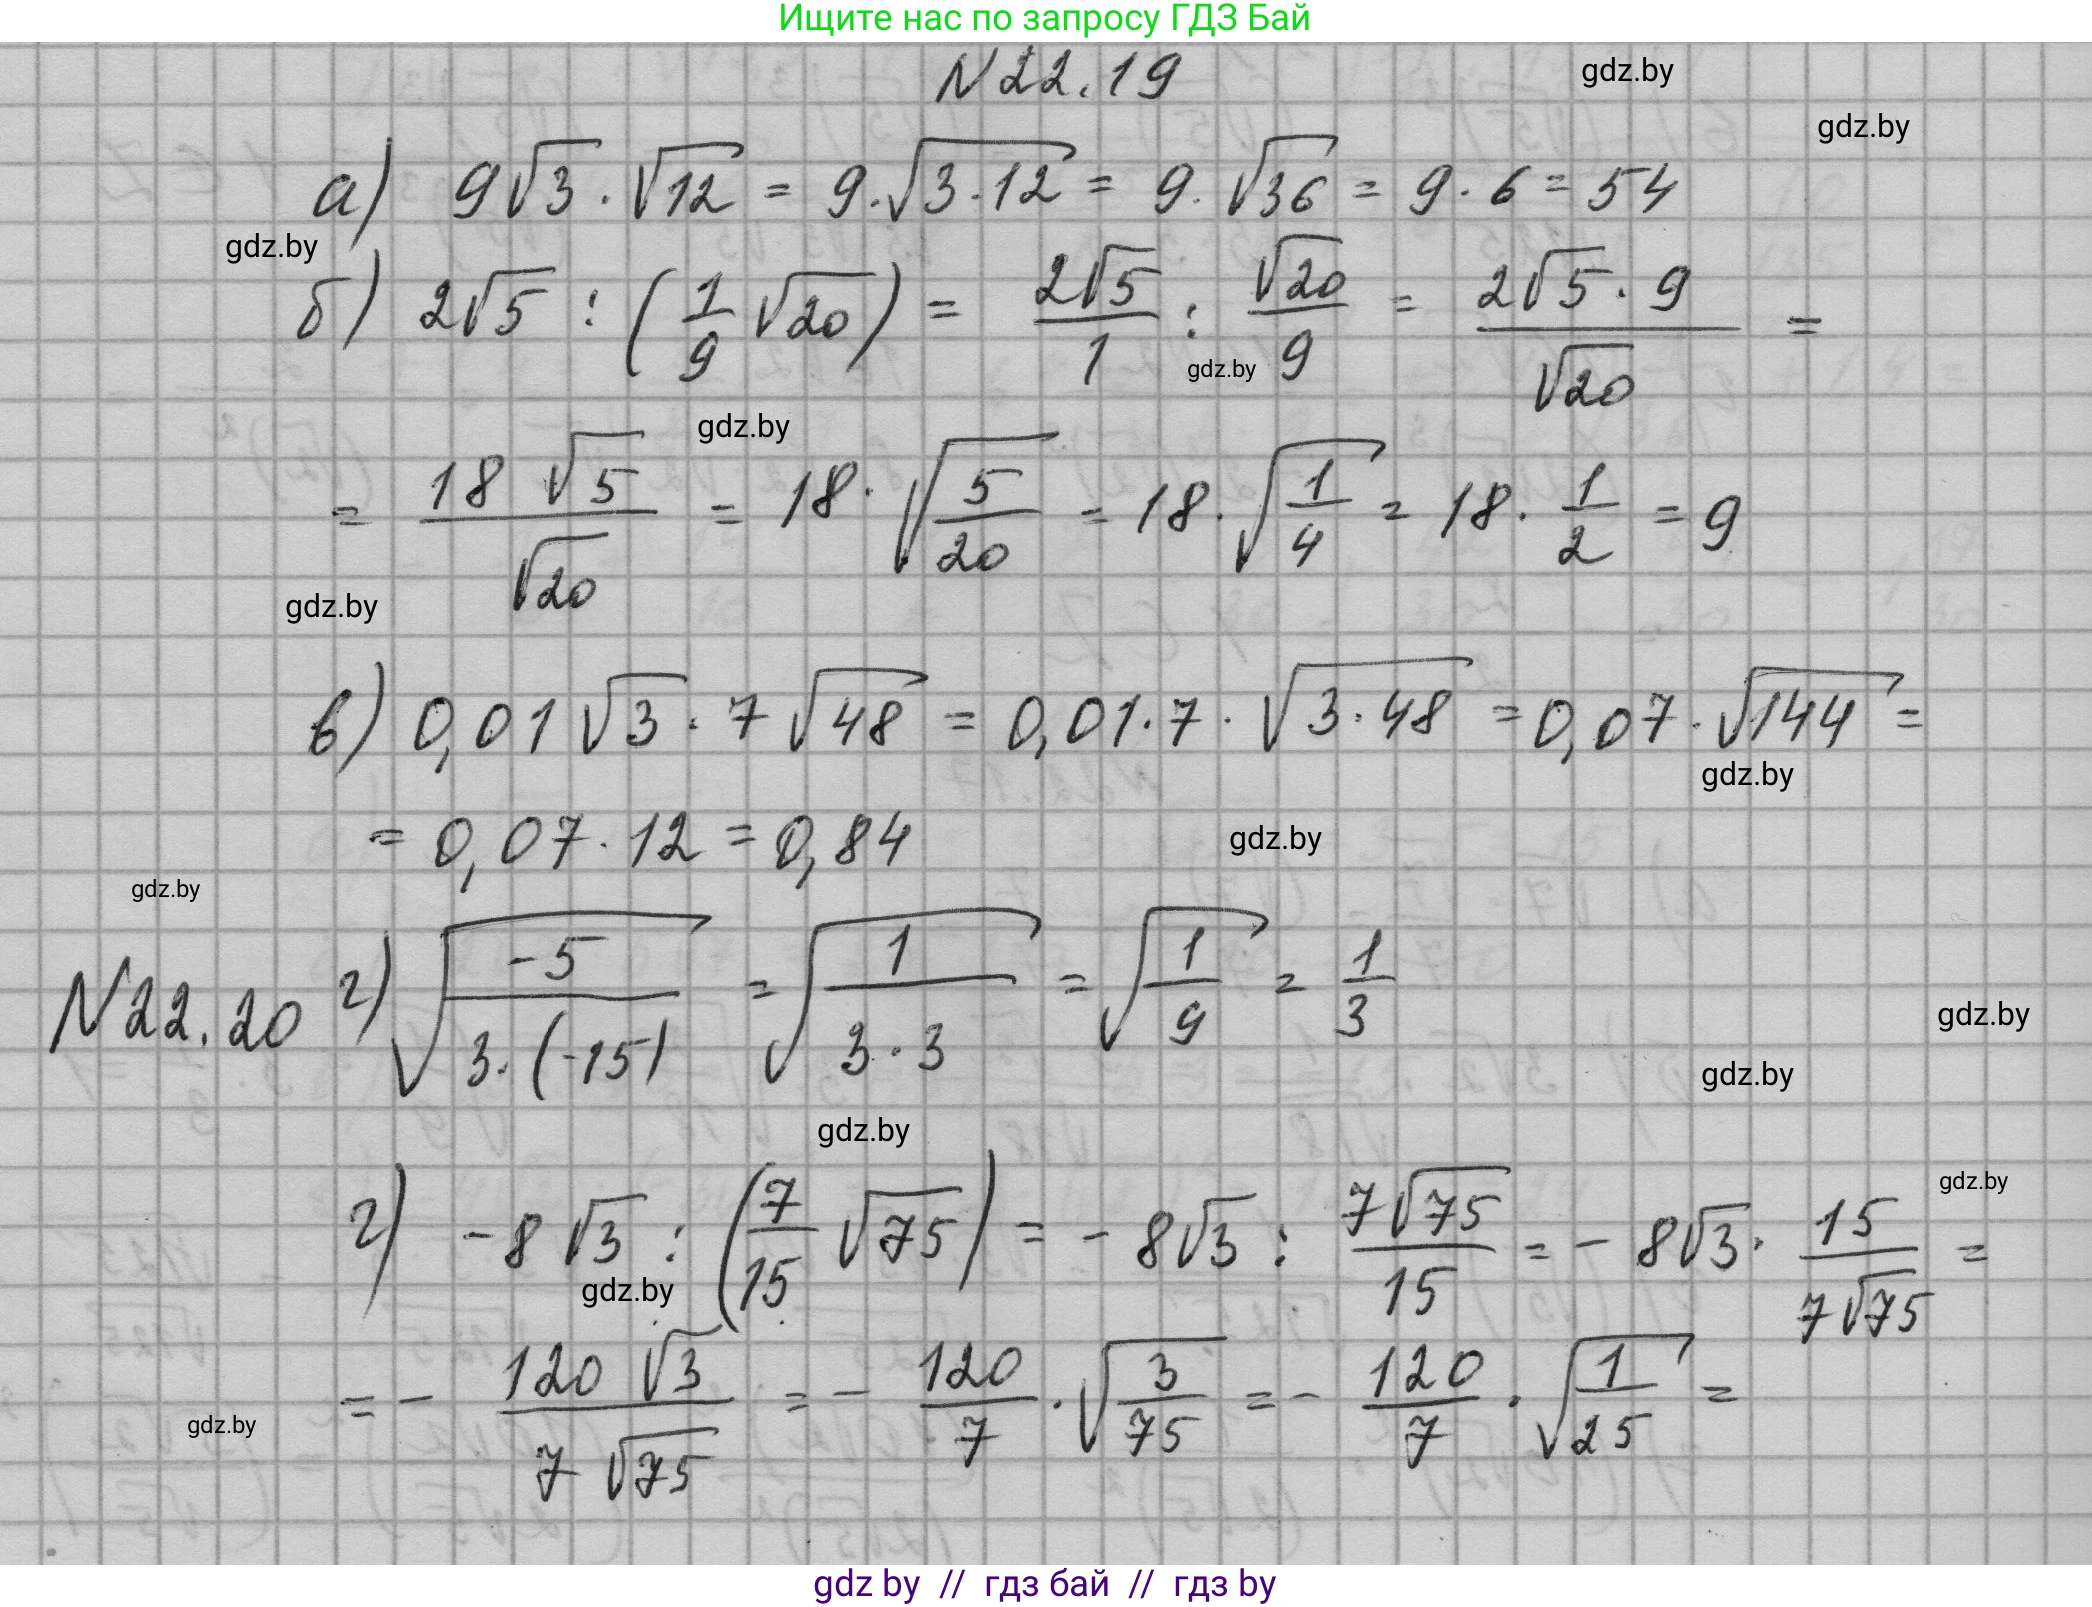 Ищите нас по запросу ГДЗ Бай
N22.19
gdz.by
gdz.by
а) 9√3 · √12 = 9·√3·12 = 9·√36 = 9·6 = 54
gdz.by
б) 2√5 : (1/9 √20) = 2√5/1 : √20/9 = 2√5·9/√20 =
gdz.by
gdz.by
= 18√5/√20 = 18·√5/20 = 18·√1/4 = 18·1/2 = 9
gdz.by
в) 0,01√3 · 7√48 = 0,01·7·√3·48 = 0,07·√144 =
gdz.by
= 0,07·12 = 0,84
gdz.by
gdz.by
N22.20 г) √-5/3·(-15) = √1/3·3 = √1/9 = 1/3
gdz.by
gdz.by
gdz.by
gdz.by
г) -8√3 : (7/15 √75) = -8√3 : 7√75/15 = -8√3 · 15/7√75 =
gdz.by
= - 120√3/7√75 = - 120/7 · √3/75 = - 120/7 · √1/25 =
gdz.by
gdz by // гдз бай // гдз by